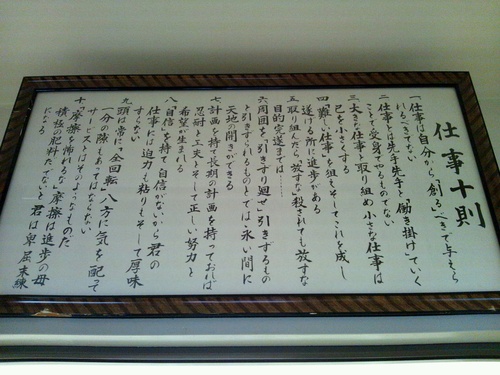 仕事十則
一 「仕事は自分から「創る」べきで与えら
れるべきでない
二 仕事とは先手先手と「働き掛け」ていく
ことで受身でやるものでない
三 大きな仕事と取り組め小さな仕事は
己を小さくする
四 「難しい仕事」を狙えそしてこれを成し
遂げる所に進歩がある
五 取り組んだら「放すな」殺されても放すな
目的完遂までは……
六 周囲を「引きずり廻せ」引きずるもの
と引きずられるものとでは、永い間に
天地の開きができる
七 「計画」を持て長期の計画を持っておれば
忍耐と工夫とそして正しい努力と
希望が生まれる
八 「自信」を持て自信がないから君の
仕事には迫力も粘りもそして厚味
すらない
九 頭は常に「全回転」八方に気を配って
一分の隙もあってはならない
サービスとはそのようなものだ
十 「摩擦を怖れるな」摩擦は進歩の母
積極の肥料だでないと君は卑屈未練
になる